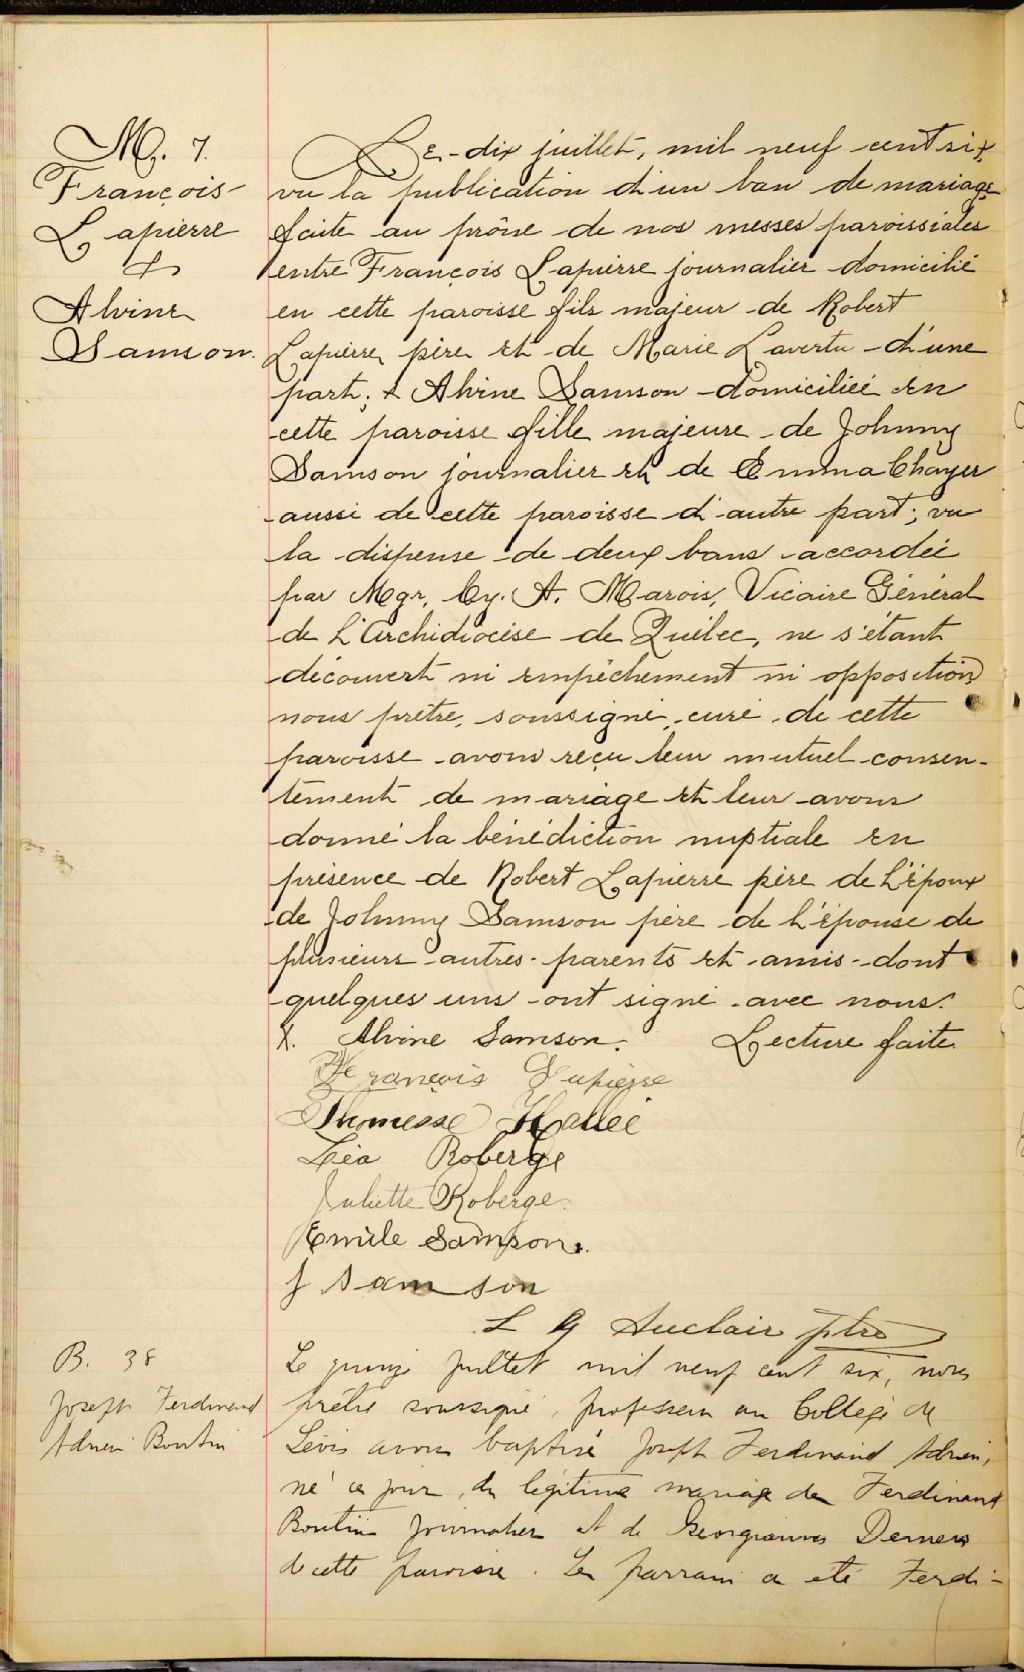 M. 7.
François
Lapierre
&
Alvine
Samson.
Le dix juillet, mil neuf cent six,
vu la publication d'un ban de mariage
faite au prône de nos messes paroissiales
entre François Lapierre journalier domicilié
en cette paroisse fils majeur de Robert
Lapierre, père et de Marie Lavertu d'une
part; & Alvine Samson domiciliée en
cette paroisse fille majeure de Johnny
Samson journalier et de Emma Chayer
aussi de cette paroisse d'autre part; vu
la dispense de deux bans accordée
par Mgr. Cy. A. Marois, Vicaire Général
de L'Archidiocèse de Québec, ne s'étant
découvert ni empêchement ni opposition
nous prêtre, soussigné, curé de cette
paroisse avons reçu leur mutuel consen-
tement de mariage et leur avons
donné la bénédiction nuptiale en
présence de Robert Lapierre père de L'époux
de Johnny Samson père de l'épouse de
plusieurs autres parents et amis dont
quelques uns ont signé avec nous.
X. Alvine Samson. Lecture faite.
François Lapierre
Thomesse Hallée
Léa Roberge
Juliette Roberge.
Emile Samson.
J Samson
L G Auclair ptre
B. 38
Joseph Ferdinand
Adrien Boutin
Le quinze juillet mil neuf cent six, nous
prêtre soussigné, professeur au Collège de
Lévis avons baptisé Joseph Ferdinand Adrien,
né ce jour, du légitime mariage de Ferdinand
Boutin journalier et de Georgianna Demers
de cette paroisse. Le parrain a été Ferdi-